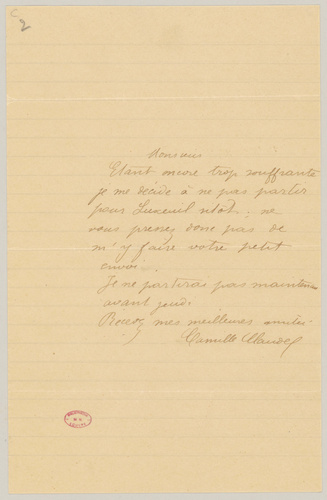 2
Monsieur
Etant encore trop souffrante
je me décide à ne pas partir
pour Luxeuil sitôt ; ne
vous pressez donc pas de
m'y faire votre petit
envoi.
Je ne partirai pas maintenant
avant jeudi.
Recevez mes meilleures amitiés
Camille Claudel